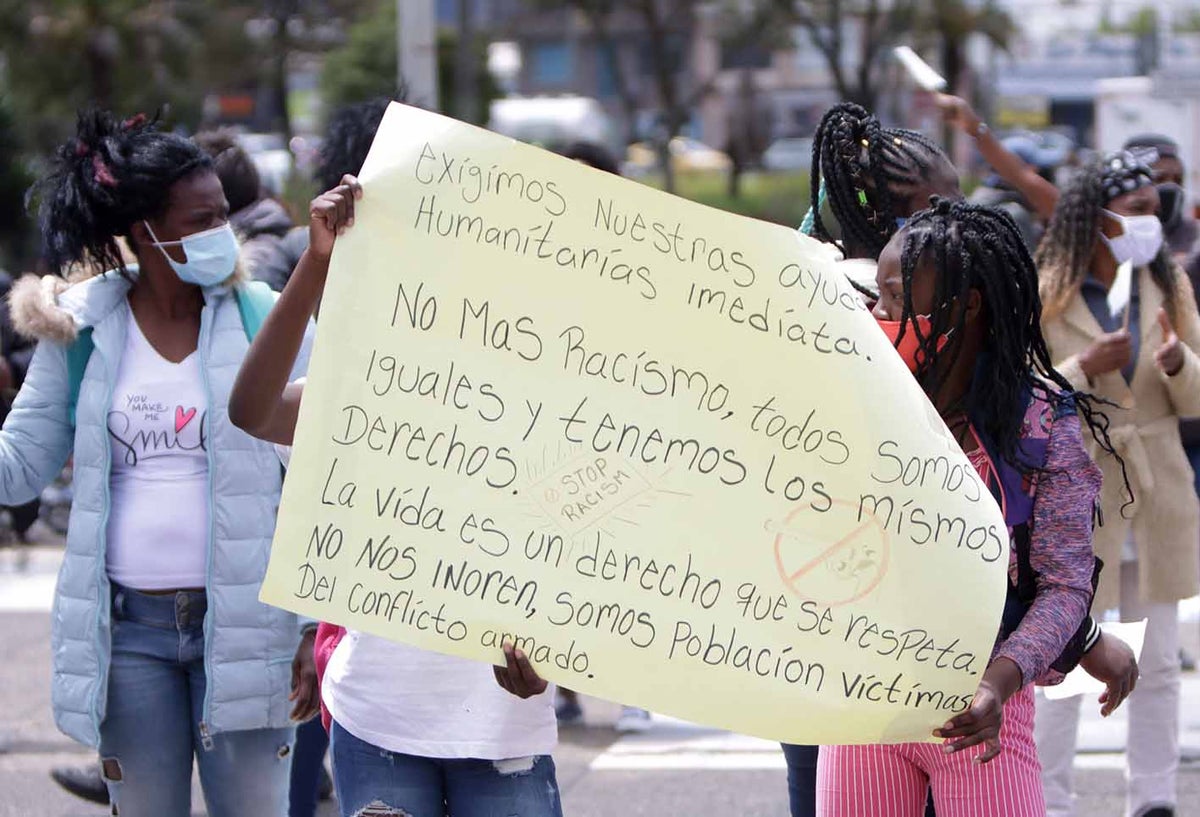 YOU
MAKE
ME
Smile
exigimos Nuestras ayudas
Humanitarias imediata.
No Mas Racismo, todos somos
iguales y tenemos los mismos
Derechos.
STOP
RACISM
La vida es un derecho que se respeta.
NO NOS INOREN, somos Población víctimas
Del conflicto armado.